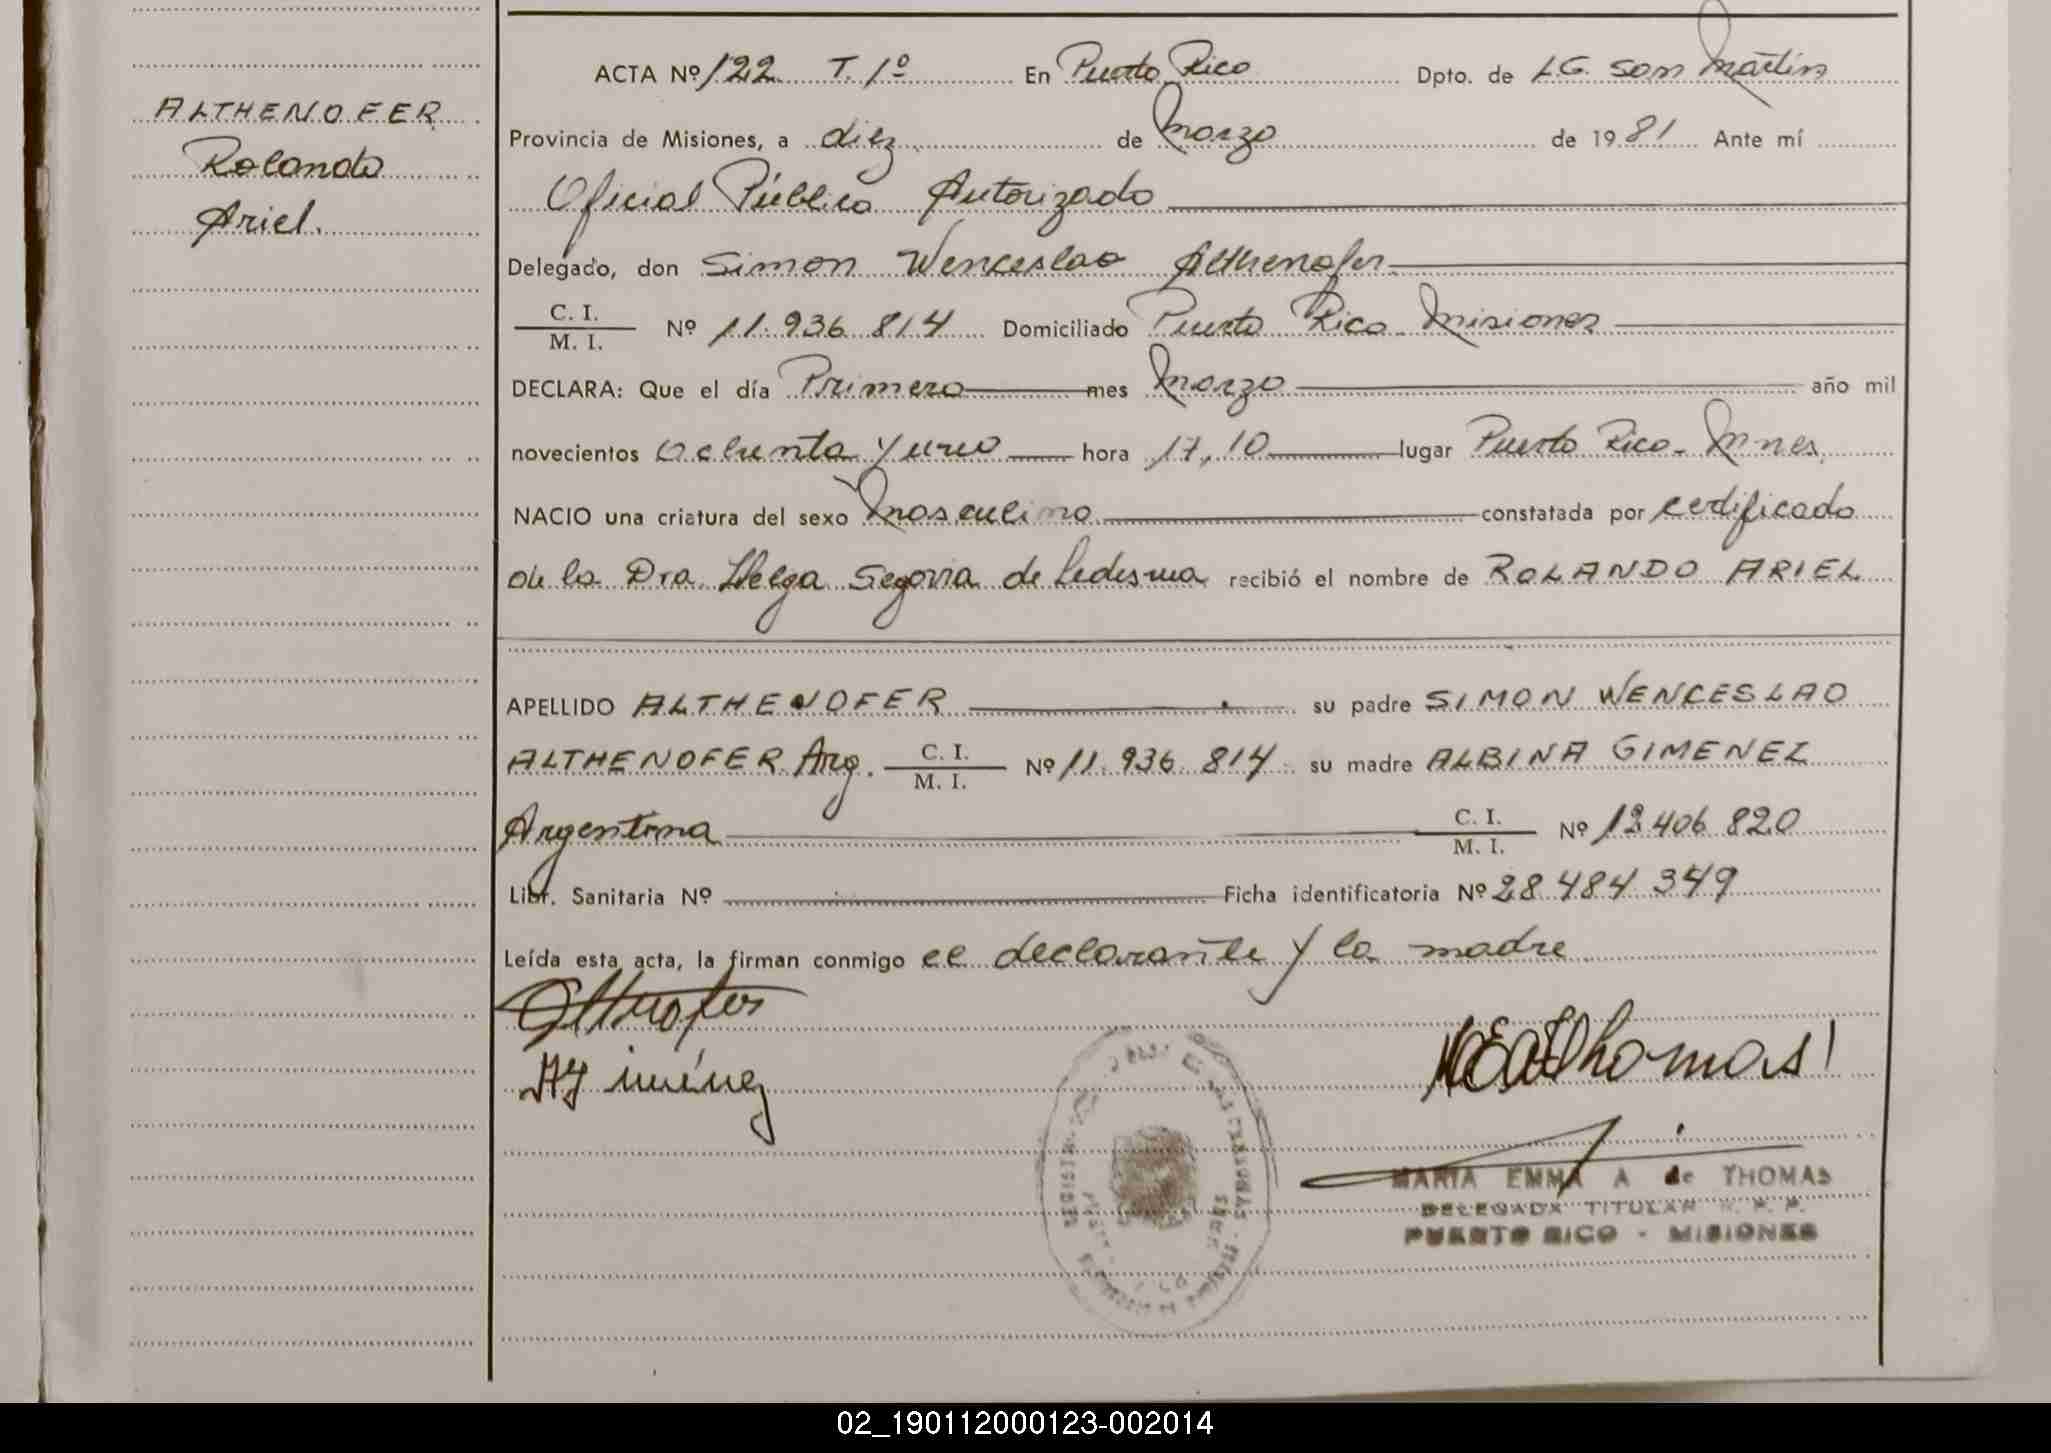 ALTHENOFER
Rolando
Ariel.
ACTA Nº 122 T. 1º En Puerto Rico Dpto. de L.G. San Martín
Provincia de Misiones, a diez de Marzo de 1981 Ante mí
Oficial Público Autorizado
Delegado, don Simon Wenceslao Althenofer
C. I. / M. I. Nº 11.936.814 Domiciliado Puerto Rico Misiones
DECLARA: Que el día Primero mes Marzo año mil
novecientos Ochenta y uno hora 17,10 lugar Puerto Rico - Mnes.
NACIO una criatura del sexo Masculino constatada por certificado
de la Dra. Helga Segovia de Ledesma recibió el nombre de ROLANDO ARIEL
APELLIDO ALTHENOFER su padre SIMON WENCESLAO
ALTHENOFER Arg. C. I. / M. I. Nº 11.936.814 su madre ALBINA GIMENEZ
Argentina C. I. / M. I. Nº 12.406.820
Libr. Sanitaria Nº Ficha identificatoria Nº 28.484.349
Leída esta acta, la firman conmigo el declarante y la madre
AGiménez
Thomas
MARIA EMMA A de THOMAS
DELEGADA TITULAR R. P. P.
PUERTO RICO - MISIONES
02_190112000123-002014